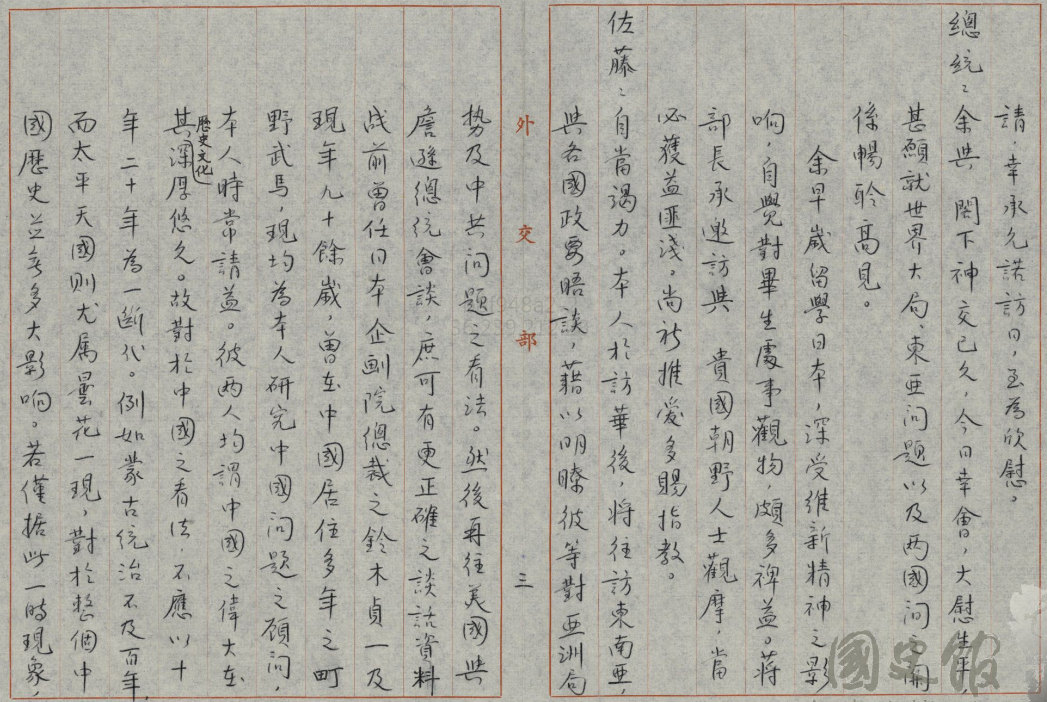 請，幸承允諾訪日，至為欣慰。
總統：余與 閣下神交已久，今日幸會，大慰生平，
甚願就世界大局、東亞问題以及两國间之関
係暢聆高見。
余早歲留學日本，深受維新精神之影
响，自覺對畢生處事觀物，頗多裨益。蔣
部長承邀訪與 貴國朝野人士觀摩，當
必獲益匪淺。尚祈推愛多賜指教。
佐藤：自當竭力。本人於訪華後，將往訪東南亜，
與各國政要晤談，藉以明瞭彼等對亚洲局
外交部
三
势及中共问題之看法。然後再往美國與
詹遜總統會談，庶可有更正確之談話資料
戰前曾任日本企劃院總裁之鈴木貞一及
現年九十餘歲，曾在中國居住多年之町
野武馬，現均為本人研究中國问題之顾问，
本人時常請益。彼两人均謂中國之偉大在
其歷史文化深厚悠久。故對於中國之看法，不應以十
年二十年為一断代。例如蒙古統治不及百年，
而太平天國則尤属曇花一現，對於整個中
國歷史並無多大影响。若僅据此一時現象，
國史館